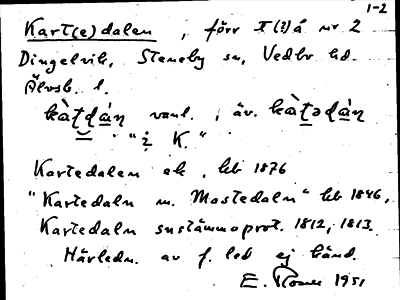 1-2
Kart(e)dalen, förr T(?)å nr 2
Dingelvik, Steneby sn, Vedbo hd.
Älvsb. l.
kàṭḍán vanl., äv. kàṭədán
"i K."
Kartedalen ek, hb 1876
"Kartedaln m. Mostedaln" hb 1846,
Kartedaln sustämmoprot. 1812, 1813.
Härledn. av f. led ej känd.
E. 1951